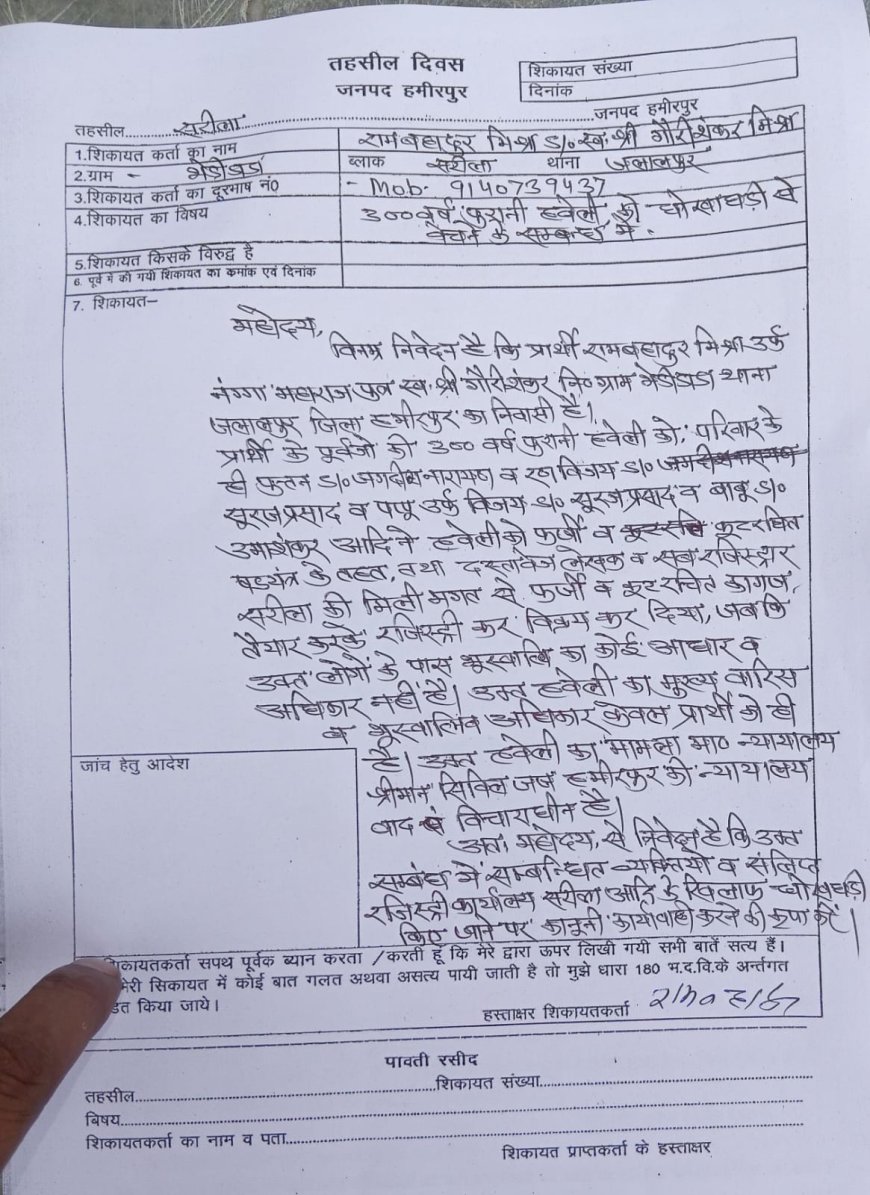 तहसील दिवस
जनपद हमीरपुर
शिकायत संख्या
दिनांक
तहसील....सरीला....जनपद हमीरपुर
1.शिकायत कर्ता का नाम रामबहादुर मिश्रा S/० स्व. श्री गौरीशंकर मिश्रा
2.ग्राम - भेडीडाडा ब्लाक सरीला थाना जलालपुर
3.शिकायत कर्ता का दूरभाष नं० - Mob. 9140739437
4.शिकायत का विषय 300 वर्ष पुरानी हवेली को धोखाधड़ी से
बेचने के सम्बन्ध में.
5.शिकायत किसके विरुद्ध है
6. पूर्व में की गयी शिकायत का कमांक एवं दिनांक
7. शिकायत–
महोदय,
विनम्र निवेदन है कि प्रार्थी रामबहादुर मिश्रा उर्फ
नंग्गा महाराज पुत्र स्व. श्री गौरीशंकर नि० ग्राम थाना
जलालपुर जिला हमीरपुर का निवासी है।
प्रार्थी के पूर्वजो की 300 वर्ष पुरानी हवेली को, परिवार के
ही पुतन S/० जगदीश नारायण व रण विजय S/०
सूरज प्रसाद व पप्पू उर्फ विजय S/० सूरज प्रसाद व बाबू S/०
उमाशंकर आदि ने हवेली को फर्जी व कूटरचित
षडयंत्र के तहत, तथा दस्तावेज लेखक व सब रजिस्ट्रार
सरीला की मिली भगत से फर्जी व कूटरचित कागज
तैयार करके रजिस्ट्री कर विक्रय कर दिया, जब कि
उक्त लोगों के पास भूस्वामित्व का कोई आधार व
अधिकार नहीं है। उक्त हवेली का मुख्य वारिस
व भूस्वामित्व अधिकार केवल प्रार्थी को ही
है। उक्त हवेली का मामला मा० न्यायालय
श्रीमान सिविल जज हमीरपुर की न्यायालय
वाद विचाराधीन है।
अतः महोदय, से निवेदन है कि उक्त
सम्बंध में सम्बन्धित व्यक्तियों व संलिप्त
रजिस्ट्री कार्यालय सरीला आदि के खिलाफ धोखाधड़ी
किए जाने पर कानूनी कार्यवाही करने की कृपा करें।
जांच हेतु आदेश
शिकायतकर्ता सपथ पूर्वक ब्यान करता /करती हूं कि मेरे द्वारा ऊपर लिखी गयी सभी बातें सत्य हैं।
मेरी सिकायत में कोई बात गलत अथवा असत्य पायी जाती है तो मुझे धारा 180 भ.द.वि.के अर्न्तगत
किया जाये।
हस्ताक्षर शिकायतकर्ता
पावती रसीद
तहसील....शिकायत संख्या....
बिषय....
शिकायतकर्ता का नाम व पता....
शिकायत प्राप्तकर्ता के हस्ताक्षर